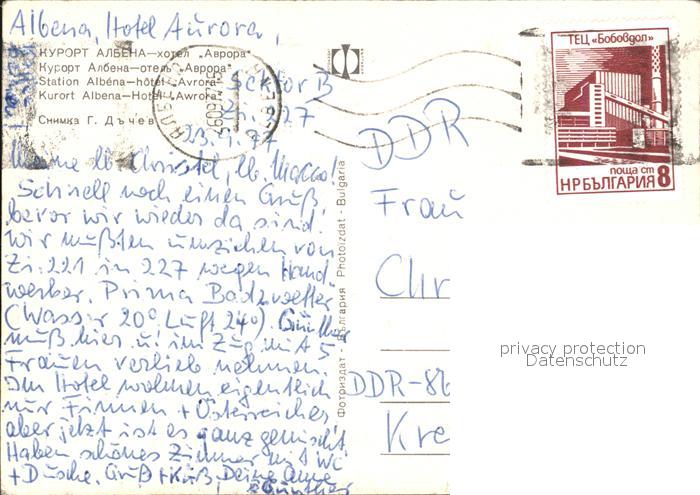 Albena, Hotel Aurora,
КУРОРТ АЛБЕНА—хотел „Аврора"
Курорт Албена—отель „Аврора"
Station Albéna—hôtel „Avrora"
Kurort Albena—Hotel „Awrora"
Снимка Г. Дъчев
Sektor B
Zi. 227
Meine lb. Christel, lb. Marco!
Schnell noch einen Gruß,
bevor wir wieder da sind.
Wir mußten umziehen von
Zi. 221 in 227 wegen Hand-
werker. Prima Badewetter
(Wasser 20° Luft 24°). Günther
muß hier u. im Zug mit 5
Frauen vorlieb nehmen.
Im Hotel wohnen eigentlich
nur Finnen + Österreicher
aber jetzt ist es ganz gemischt.
Haben schönes Zimmer mit WC
+ Dusche. Gruß + Kuß Deine
+ Günther
Фотоиздат - България Photoizdat - Bulgaria
ТЕЦ „Бобовдол"
поща ст
НР БЪЛГАРИЯ 8
DDR
Frau
Chr
DDR-86
Kre
privacy protection
Datenschutz